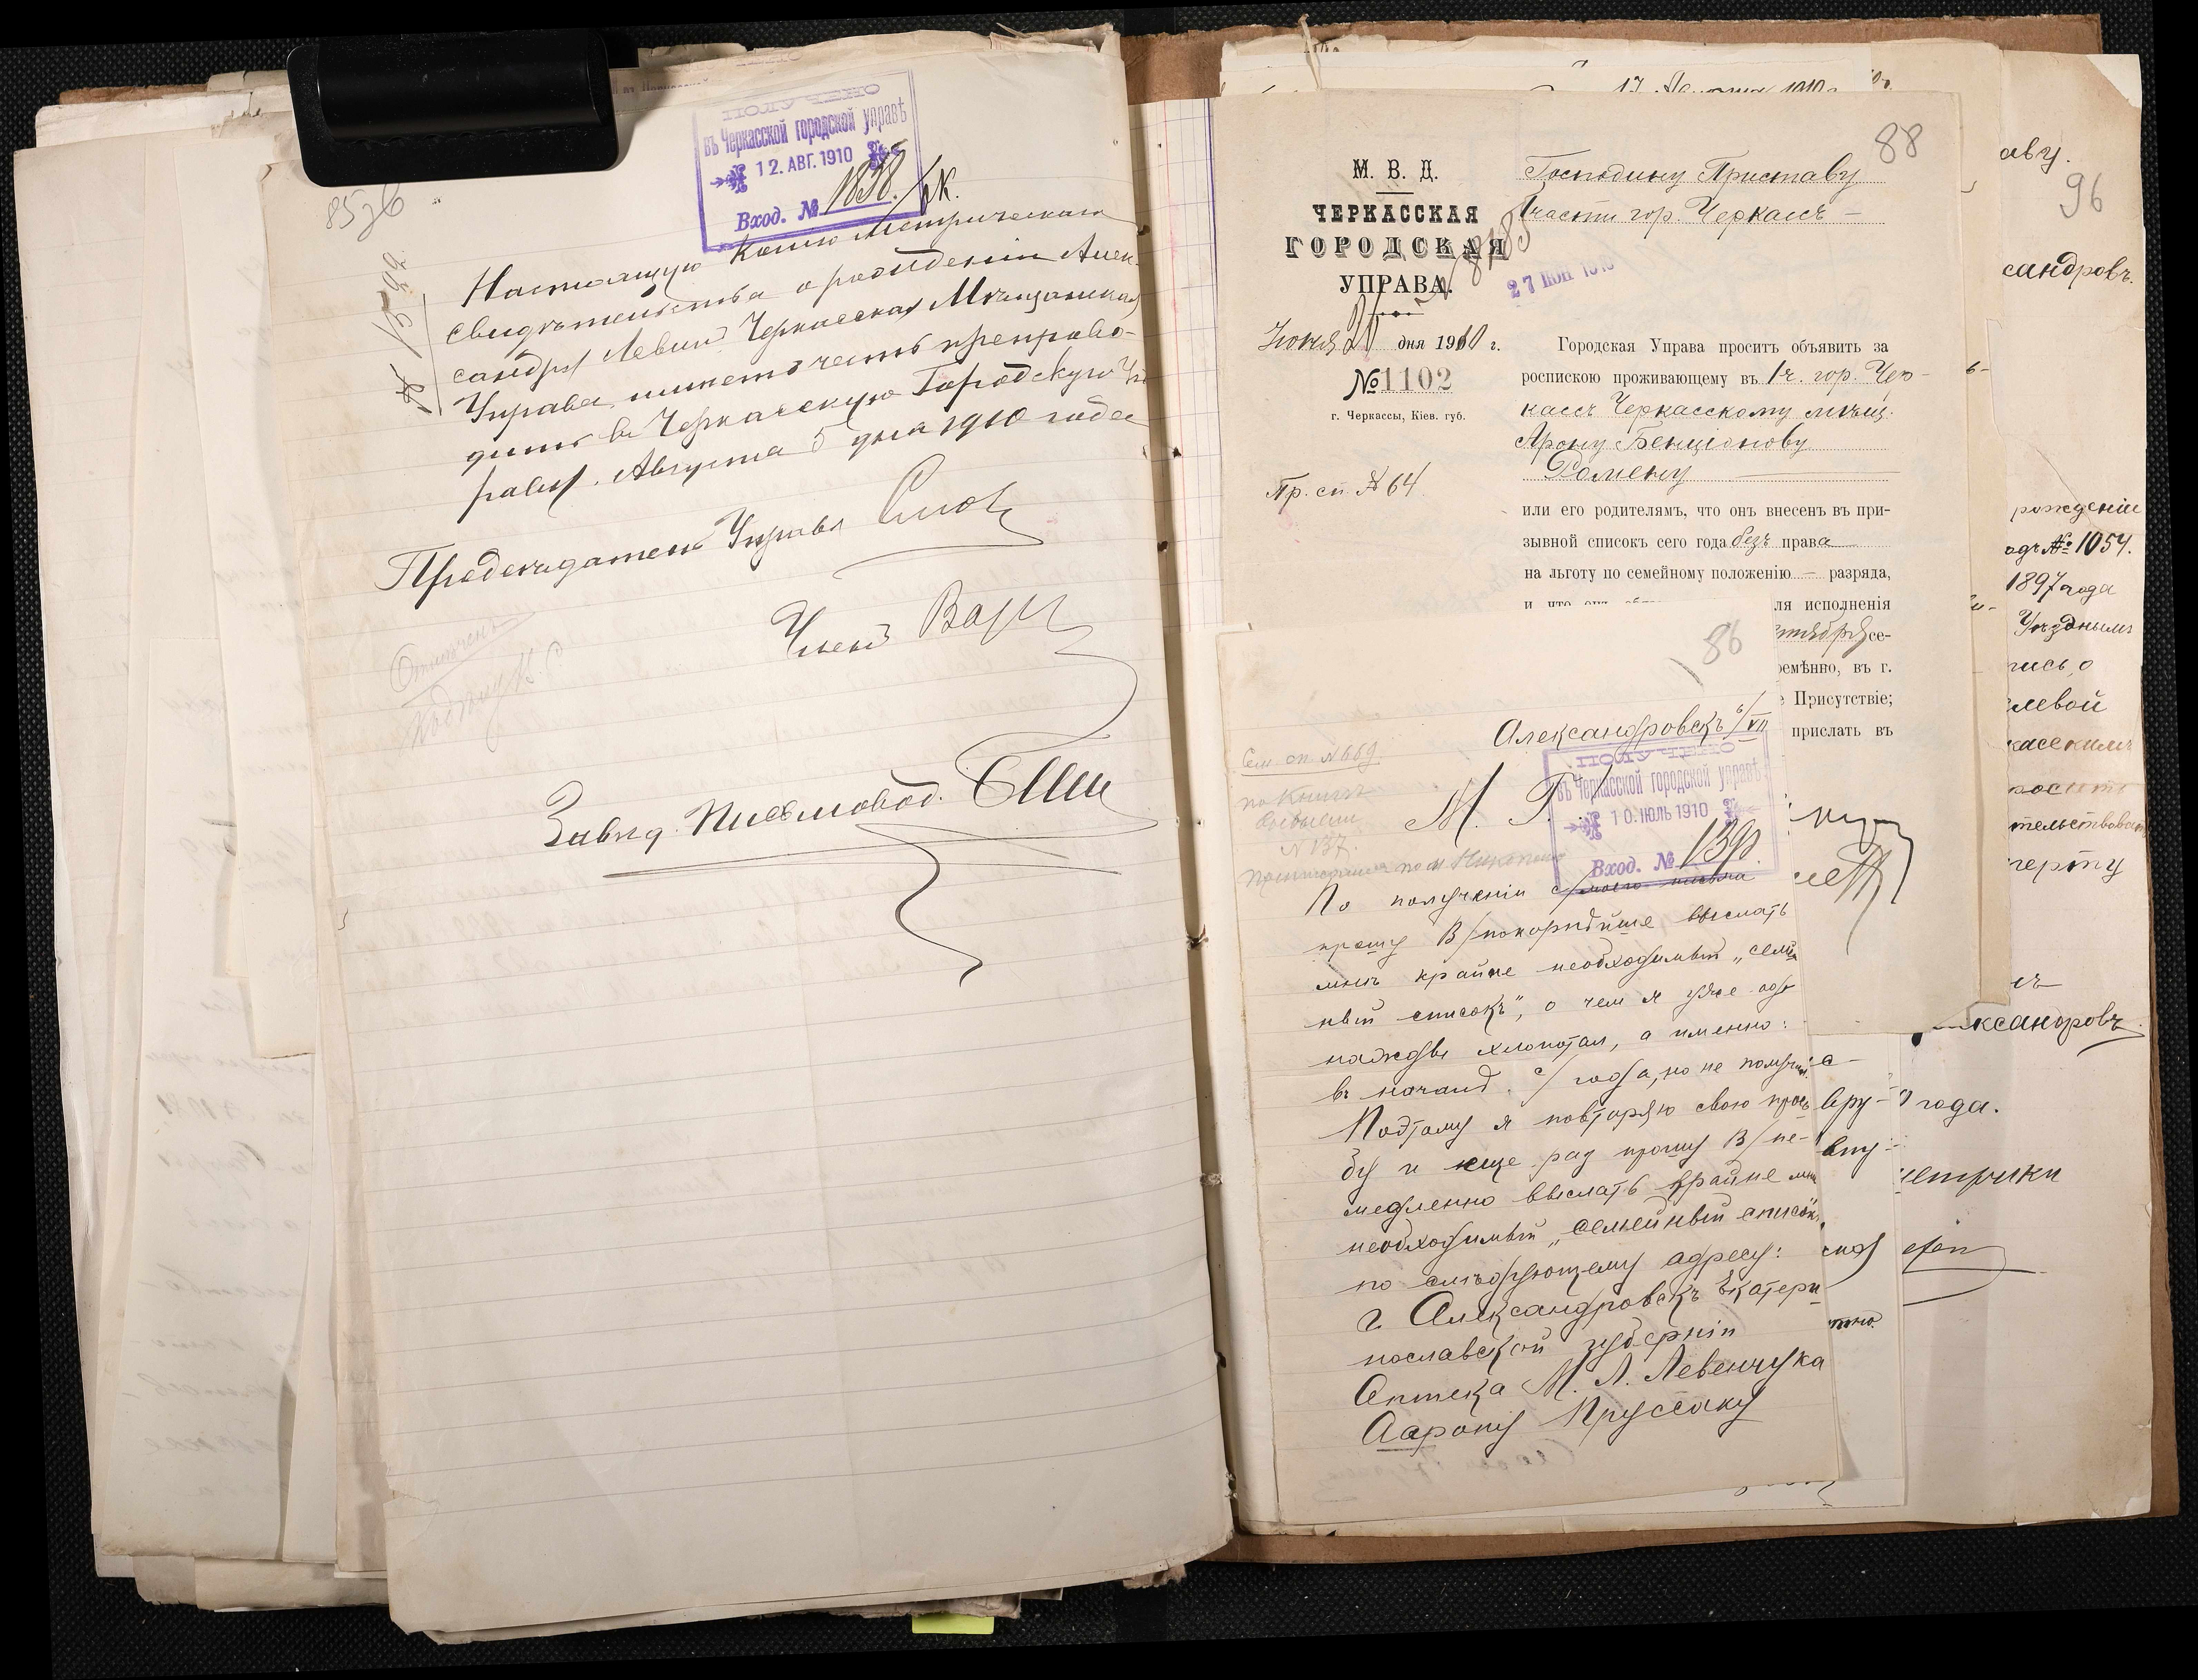 85 зб
ПОЛУЧЕНО
въ Черкасской городской управѣ
12. АВГ. 1910
Вход. № 1838
№ 1522
Настоящую копію метрическаго
свидѣтельства о рожденіи Алек-
сандра Левина Черкасская Мѣщанская
Управа имѣетъ честь препрово-
дить въ Черкасскую Городскую Уп
раву. Августа 5 дня 1910 года
Предсѣдатель Управы
Членъ
Завѣд. Письмовод.
17 1910 г.
88
М. В. Д.
ЧЕРКАССКАЯ
ГОРОДСКАЯ
УПРАВА.
Іюня 21 дня 1910 г.
№ 1102
г. Черкассы, Кіев. губ.
Пр. сп. № 64.
Господину Приставу
1 части гор. Черкассъ —
27 ІЮН 1910
Городская Управа проситъ объявить за
роспискою проживающему въ 1 ч. гор. Чер-
кассъ Черкасскому мѣщ.
Арону Бенціонову
Ромену
или его родителямъ, что онъ внесенъ въ при-
зывной списокъ сего года безъ права
на льготу по семейному положенію — разряда,
и что онъ
ля исполненія
ктября се-
ремѣнно, въ г.
Присутствіе;
прислать въ
86
Александровскъ 6/VII
Сем. сп. № 669.
по книгѣ
№ 137.
М. Г.!
ПОЛУЧЕНО
въ Черкасской городской управѣ
10. ІЮЛЬ 1910
Вход. № 1390
По полученіи с/моего письма
прошу В/покорнѣйше выслать
мнѣ крайне необходимый „семей
ный списокъ", о чем я уже одн
нажды хлопотал, а именно:
въ началѣ с/ года, но не получил.
Поэтому я повторяю свою прось
бу и еще раз прошу В/ не-
медленно выслать крайне мнѣ
необходимый „семейный списокъ"
по слѣдующему адресу:
г. Александровскъ Екатери
нославской губерніи
Аптека М. Л. Левенчука
Аарону Пруссаку
аву.
96
сандровъ.
рожденіи
одъ № 1054.
1897 года
Уѣзднымъ
пись о
левой
касскимъ
просить
тельствовать
черту
ксандровъ
года.
метрики